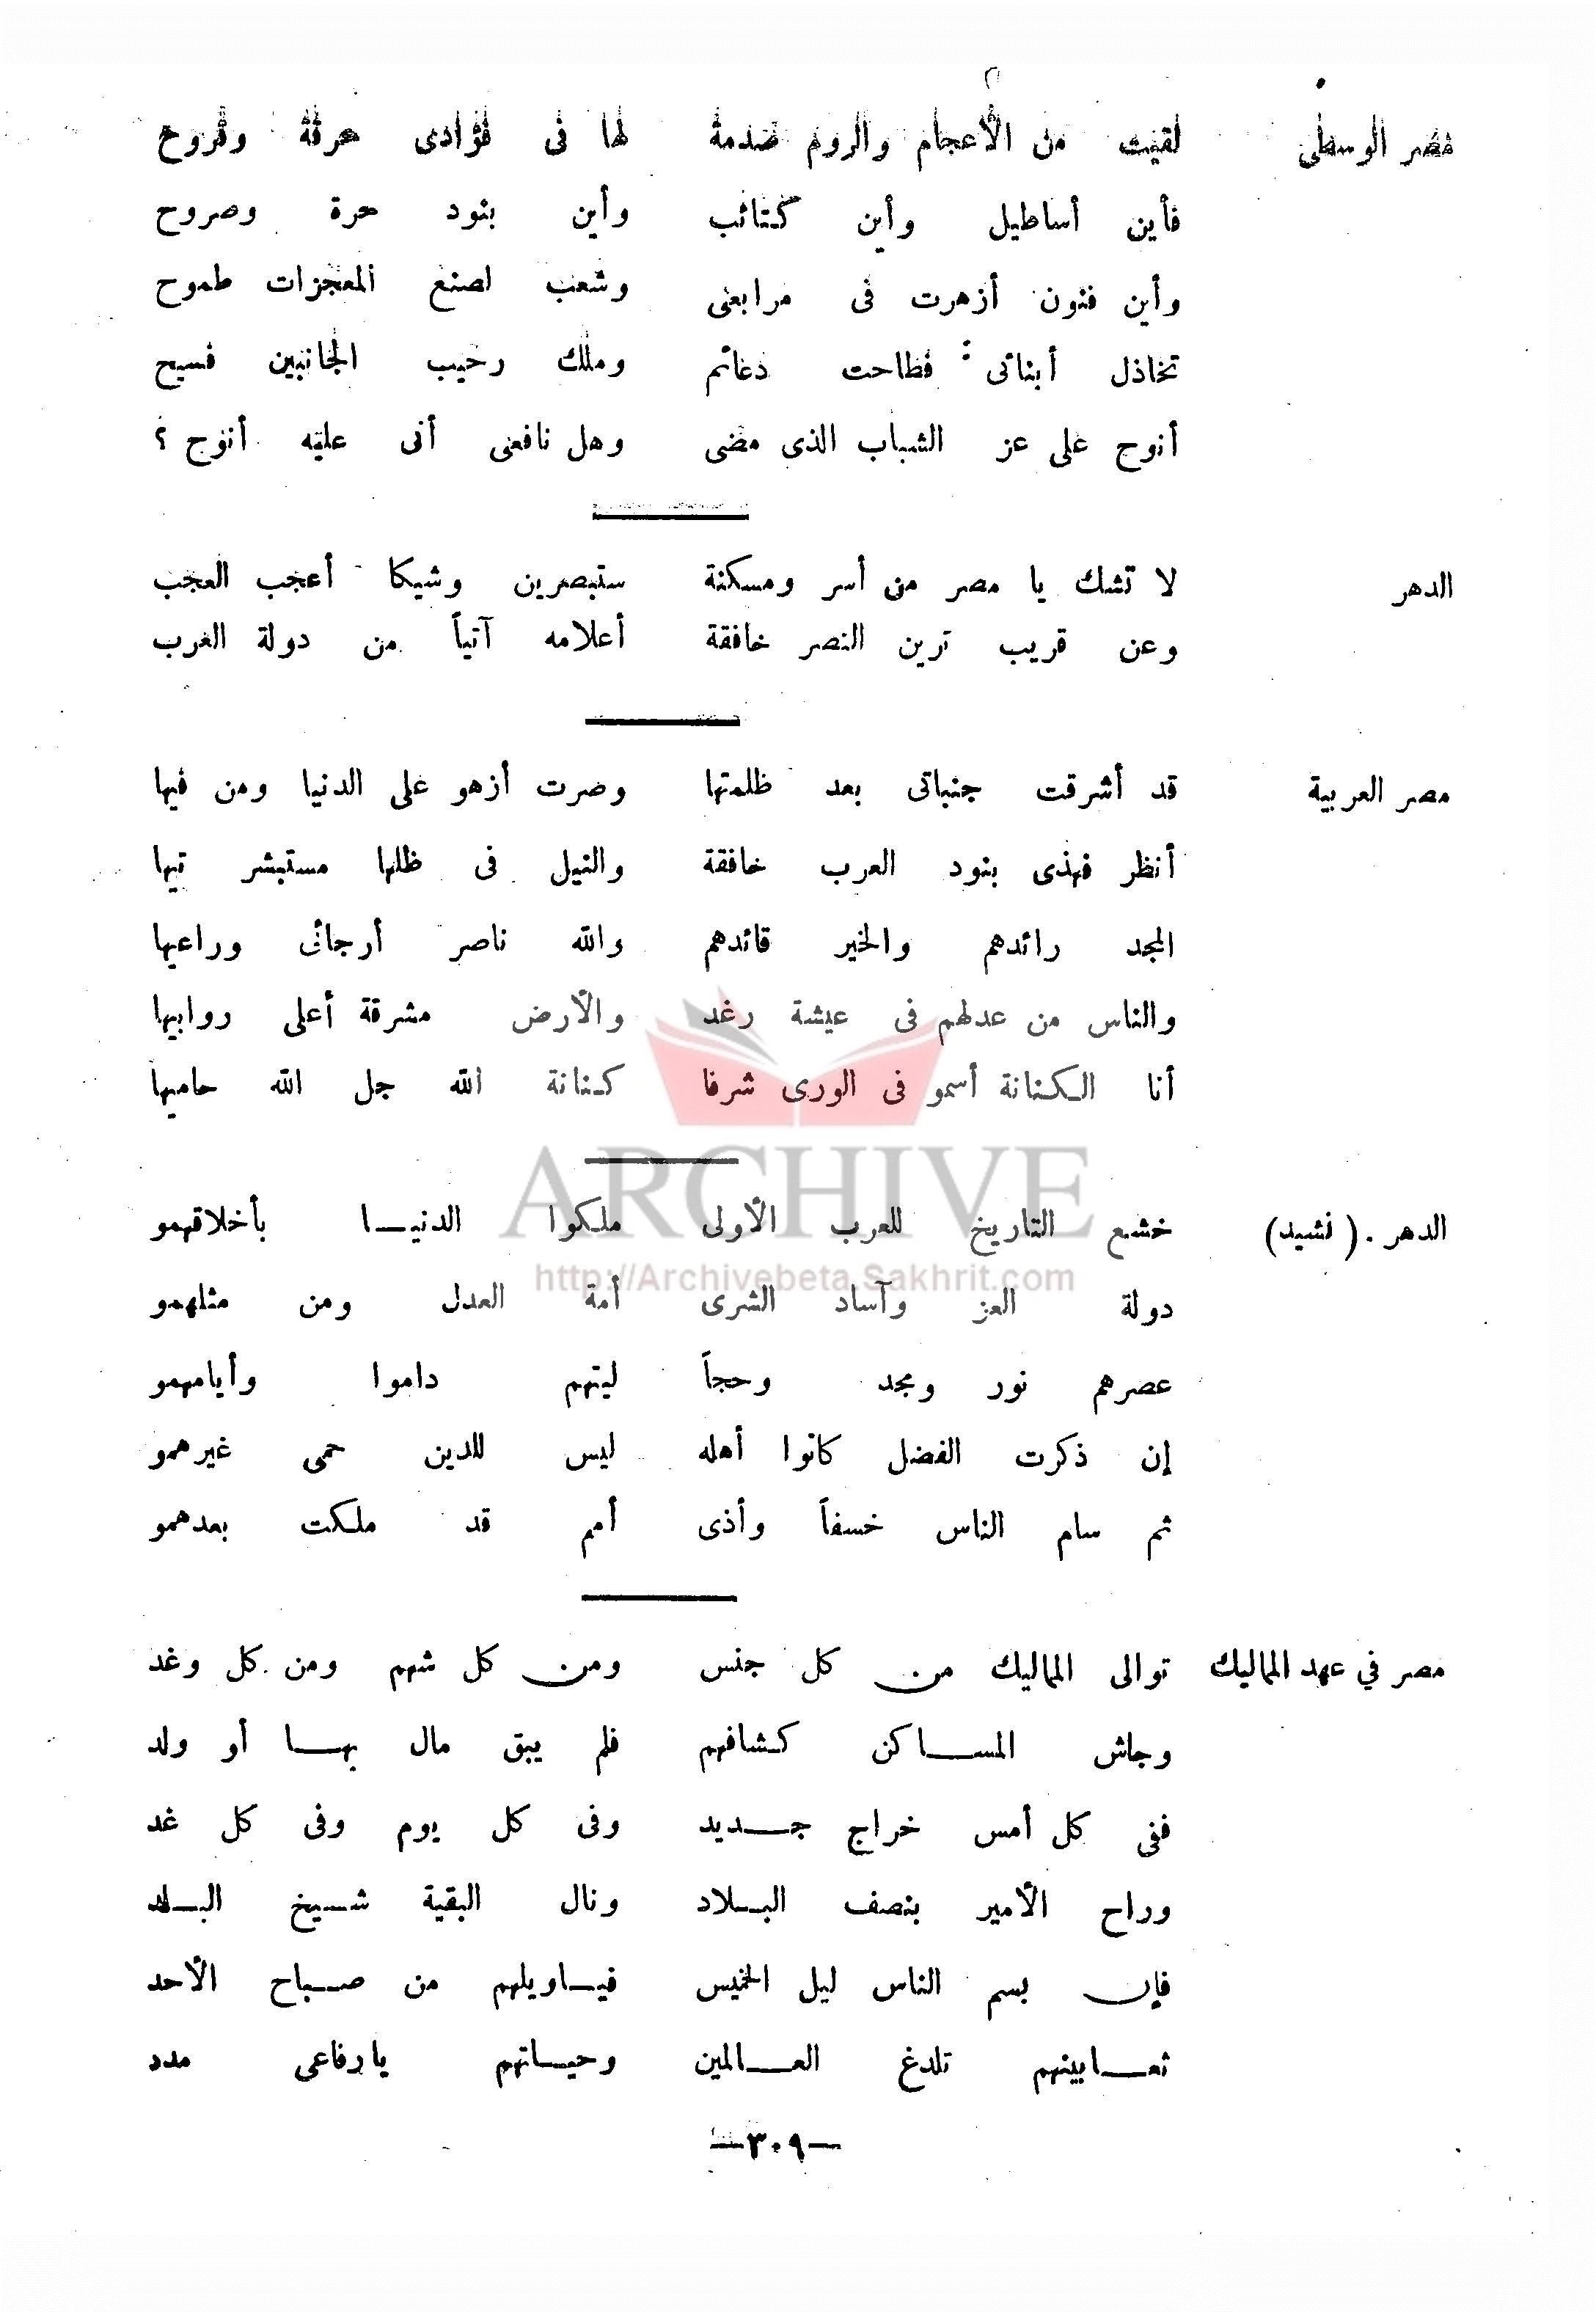 مصر الوسطى لقيت من الأعجام والروم صدمة لها فى فؤادى حرقة وقروح
فأين أساطيل وأين كتائب وأين بنود حرة وصروح
وأين فنون أزهرت فى مرابعى وشعب لصنع المعجزات طموح
تخاذل أبنائى فطاحت دعائم وملك رحيب الجانبين فسيح
أنوح على عز الشباب الذى مضى وهل نافعى أنى عليه أنوح ؟
الدهر لا تشك يا مصر من أسر ومسكنة ستبصرين وشيكا أعجب العجب
وعن قريب ترين النصر خافقة أعلامه آتياً من دولة الغرب
مصر العربية قد أشرقت جنباتى بعد ظلمتها وصرت أزهو على الدنيا ومن فيها
أنظر فهذى بنود العرب خافقة والنيل فى ظلها مستبشر تيها
المجد رائدهم والخير قائدهم والله ناصر أرجائى وراعيها
والناس من عدلهم فى عيشة رغد والأرض مشرقة أعلى روابيها
أنا الكنانة أسمو فى الورى شرفا كنانة الله جل الله حاميها
ARCHIVE
الدهر . ( نشيد ) خشع التاريخ للعرب الأولى ملكوا الدنيا بأخلاقهمو
http://Archivebeta.Sakhrit.com
دولة العز وآساد الشرى أمة العدل ومن مثلهمو
عصرهم نور ومجد وحجاً ليتهم داموا وأيامهمو
إن ذكرت الفضل كانوا أهله ليس للدين حمى غيرهمو
ثم سام الناس خسفاً وأذى أمم قد ملكت بعدهمو
مصر في عهد المماليك توالى المماليك من كل جنس ومن كل شهم ومن كل وغد
وجاش المساكن كشافهم فلم يبق مال بها أو ولد
ففى كل أمس خراج جديد وفى كل يوم وفى كل غد
وراح الأمير بنصف البلاد ونال البقية شيخ البلد
فإن بسم الناس ليل الخميس فياويلهم من صباح الأحد
ثعابينهم تلدغ العالمين وحياتهم يارفاعى مدد
—٣٠٩—